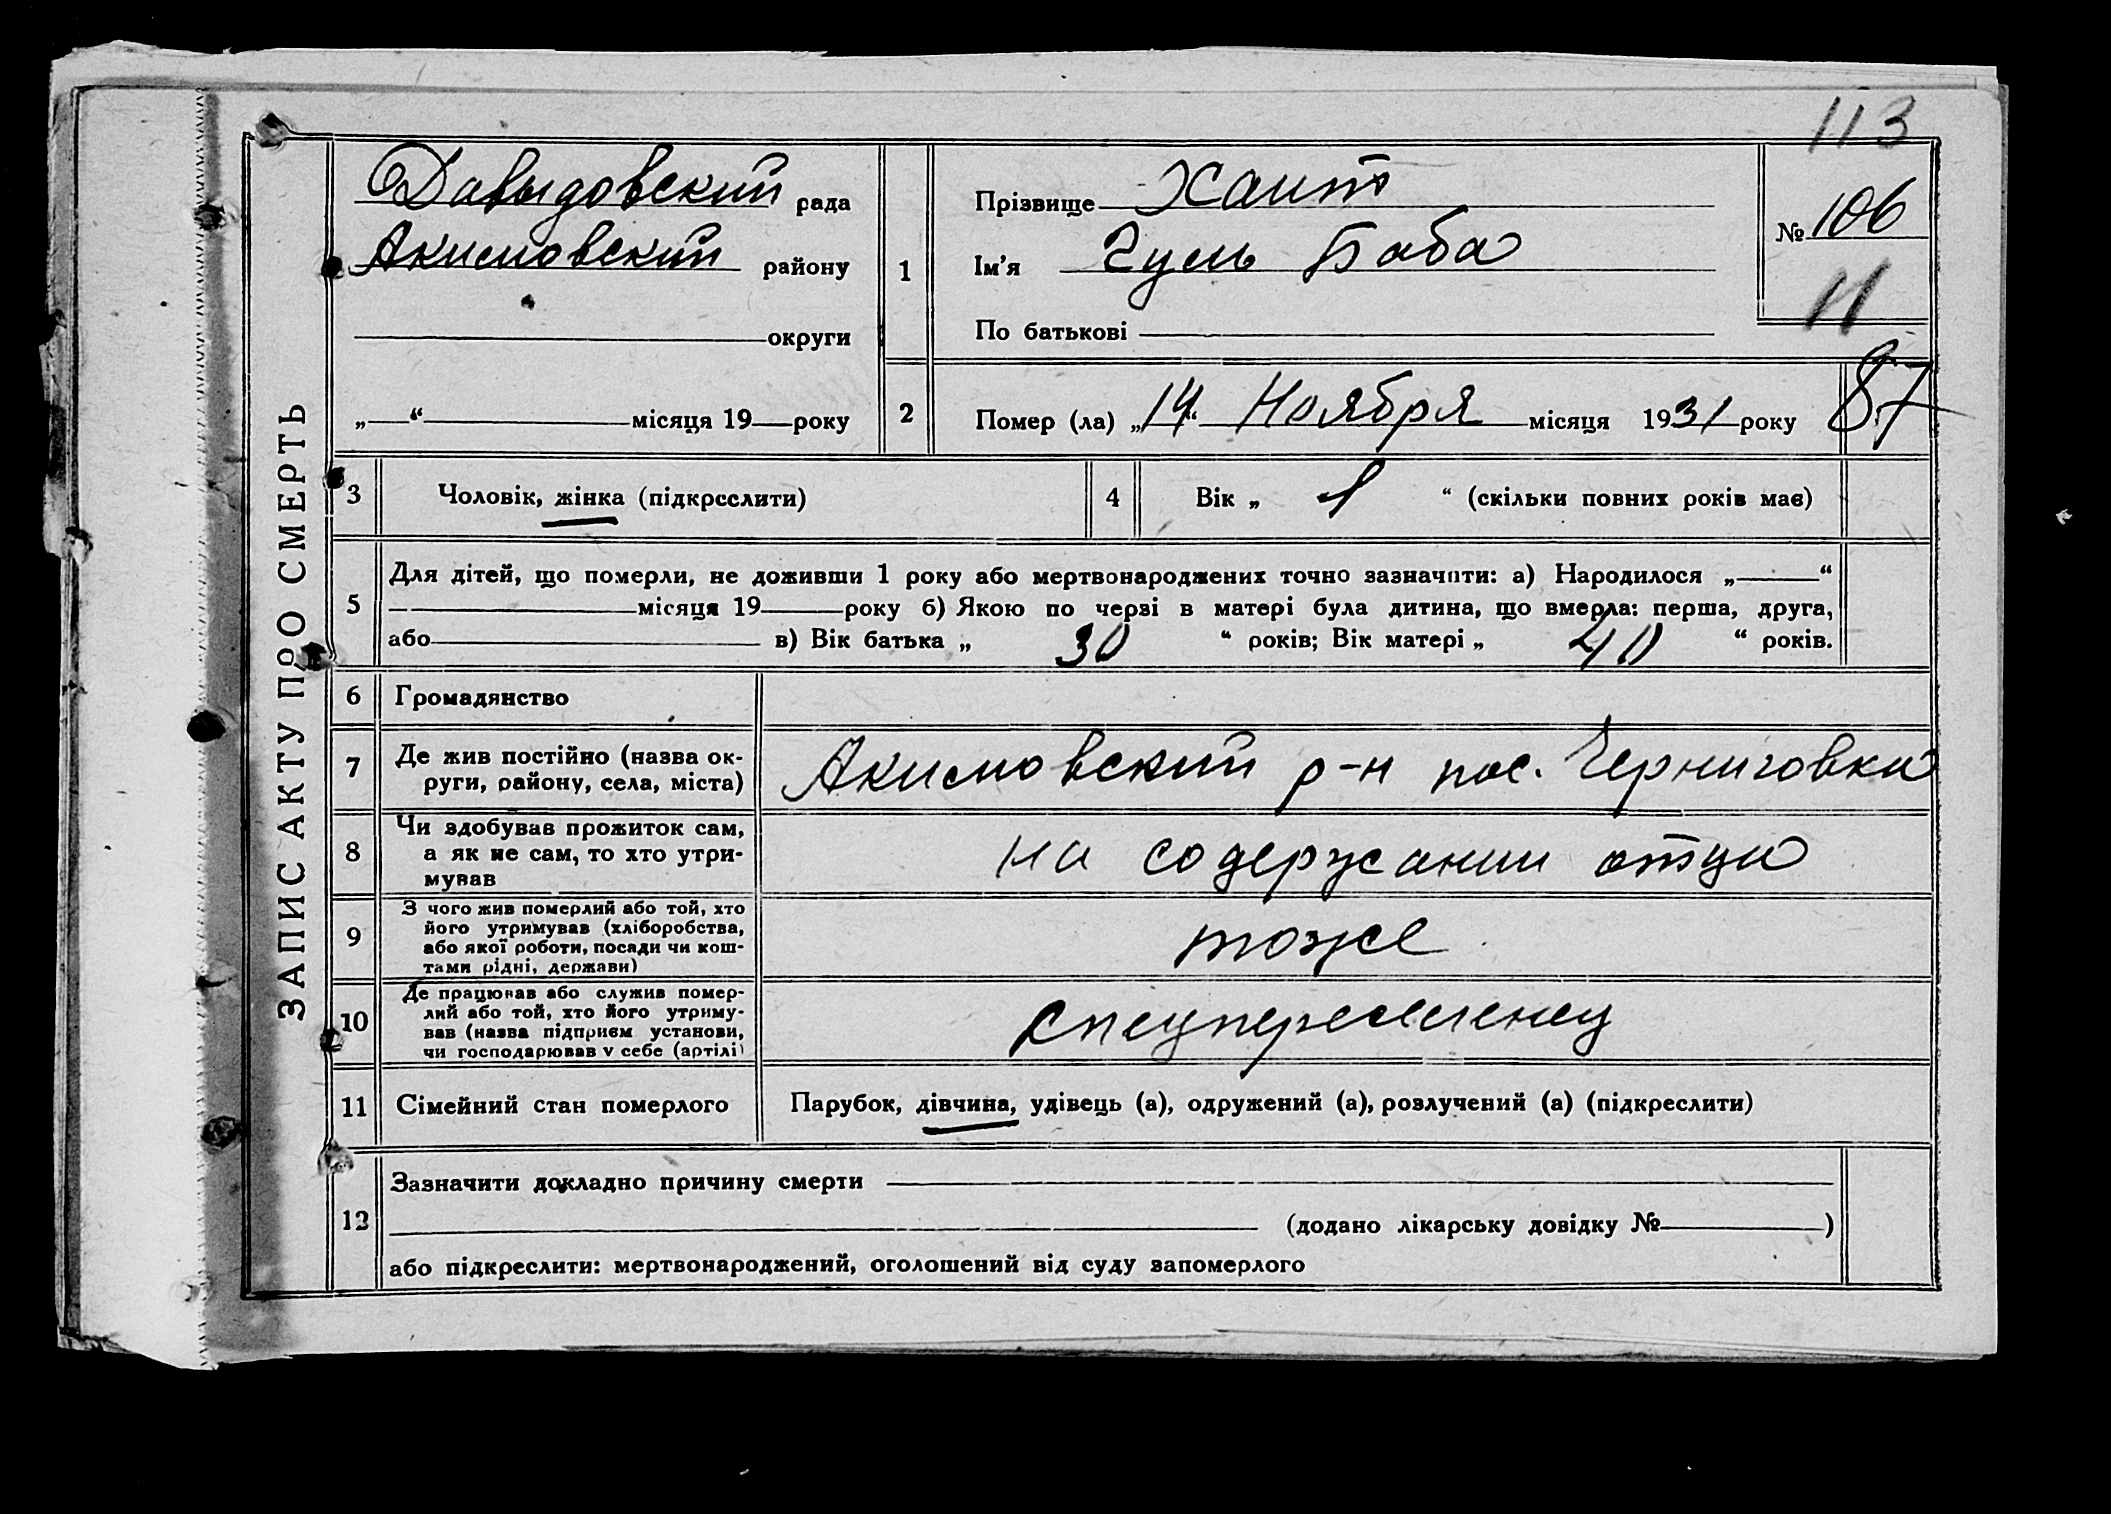 113
ЗАПИС АКТУ ПРО СМЕРТЬ
Давыдовский рада
Акимовский району
округи
„ “ місяця 19 року
1
Прізвище Хаит
Ім'я Гуль Баба
По батькові
№ 106
11
2
Помер (ла) „14“ Ноября місяця 1931 року
87
3 Чоловік, жінка (підкреслити)
4 Вік „ 1 “ (скільки повних років має)
5 Для дітей, що померли, не доживши 1 року або мертвонароджених точно зазначити: а) Народилося „ “
місяця 19 року б) Якою по черзі в матері була дитина, що вмерла: перша, друга,
або в) Вік батька „ 30 “ років; Вік матері „ 40 “ років.
6 Громадянство
7 Де жив постійно (назва ок-
руги, району, села, міста)
Акимовский р-н пос. Черниговка
8 Чи здобував прожиток сам,
а як не сам, то хто утри-
мував
на содержании отца
9 З чого жив померлий або той, хто
його утримував (хліборобства,
або якої роботи, посади чи кош-
тами рідні, держави)
тоже
10 Де працював або служив помер-
лий або той, хто його утриму-
вав (назва підприєм установи,
чи господарював у себе (артілі)
спецпереселенец
11 Сімейний стан померлого
Парубок, дівчина, удівець (а), одружений (а), розлучений (а) (підкреслити)
12 Зазначити докладно причину смерти
(додано лікарську довідку № )
або підкреслити: мертвонароджений, оголошений від суду запомерлого